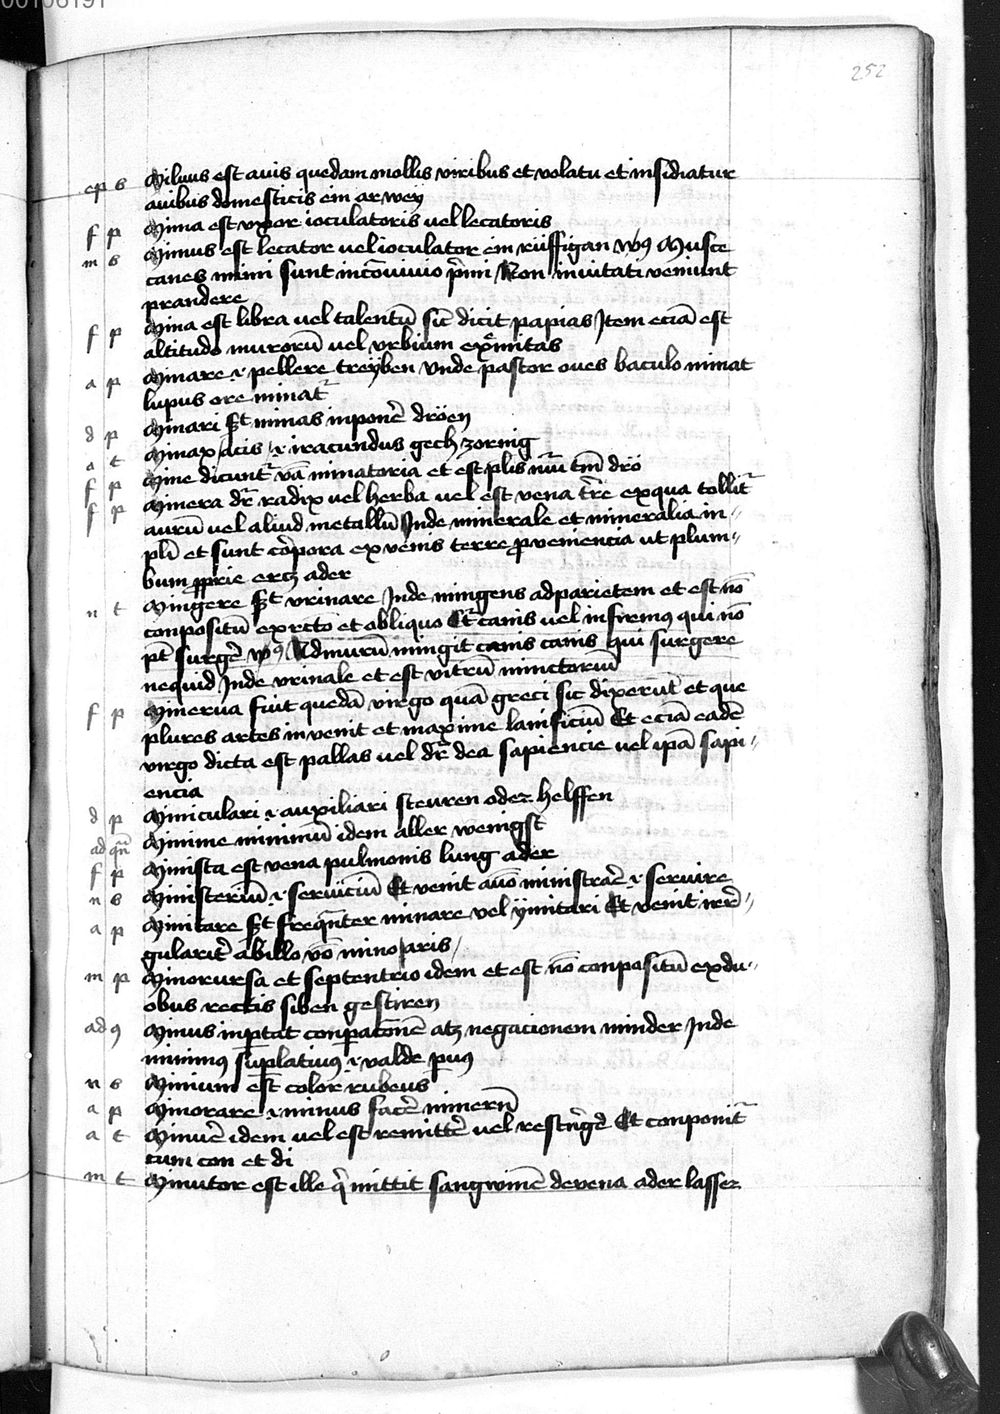 00106191
252
ep s Miluus est auis quedam mollis viribus et volatu et insidiatur
auibus domesticis ein ar wey
f p Mima est vxor ioculatoris uel lecatoris
m s Mimus est lecator uel ioculator ein rüffigan wꝰ Musce
canes mimi sunt in cōuiuio p̄mi Non inuitati veniunt
prandere
f p Mina est libra uel talentū sic̄ dicit papias Jtem eciā est
altitudo murorū uel vrbium exͤmitas
a p Minare .i. pellere treyben Vnde pastor oues baculo minat
lupus ore minat᷑
d p Minari st̄ minas inponē dröen
a t Minax acis .i. iracundus gech zornig
f p Mine dicunt᷑ vā minatoria et est pl̄is nūi tm̄ drö
f p Minera dr̄ radix uel herba uel est vena tr̄e ex qua tollit᷑
aurū uel aliud metallū Jnde minerale et mineralia in
pl̄i et sunt cōrpora ex venis terre ꝓueniencia ut plum
bum ꝓprie ercz ader
n t Mingere st̄ vrinare Jnde mingens ad parietem et est nō
conpositū ex rcto et obliquo Et᷑ canis vel infirmꝰ qui nō
pt̄ surgē wꝰ Ad murū mingit canis canis qui surgere
nequid Jnde vrinale et est vitrū minctoriū
f p Minerua fuit quedā virgo quā greci sic dixerūt et que
plures artes in venit et maxime lanificiū Et eciā eadē
virgo dicta est pallas uel dr̄ dea sapiencie uel ipā sapi
encia
d p Miniculari .i. auxiliari steuren oder helffen
ad qn̄ Minime minimū idem aller wenigst
f p Minista est vena pulmonis lung ader
n s Ministeriū .i. seruiciū Et venit auō ministrarē .i. seruire
a p Minitare st̄ freqn̄ter minare uel ymitari Et venit irre
gularitē ab illo vō mino aris
m p Minorursa et septentrio idem et est nō conpositū ex du
obus rectis siben gestiren
ad ꝯ Minus inportat conparatōnē atz negacionem minder Jnde
minimꝰ suplatiuꝰ .i. valde puꝰ
n s Minium est color rubeus
a p Minorare .i. minus facē minern
a t Minuē idem uel est remittē uel restn̄gē Et conponit᷑
cum con et di
m t Minutor est ille q̄ mittit sangwinē de vena ader lasser